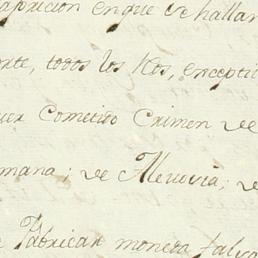 apricion en que se hallan
rte, todos los Rós, excepti
uer Cometido Crimen de
mana; de Alevosia; d
e Fabricar moneda falsa